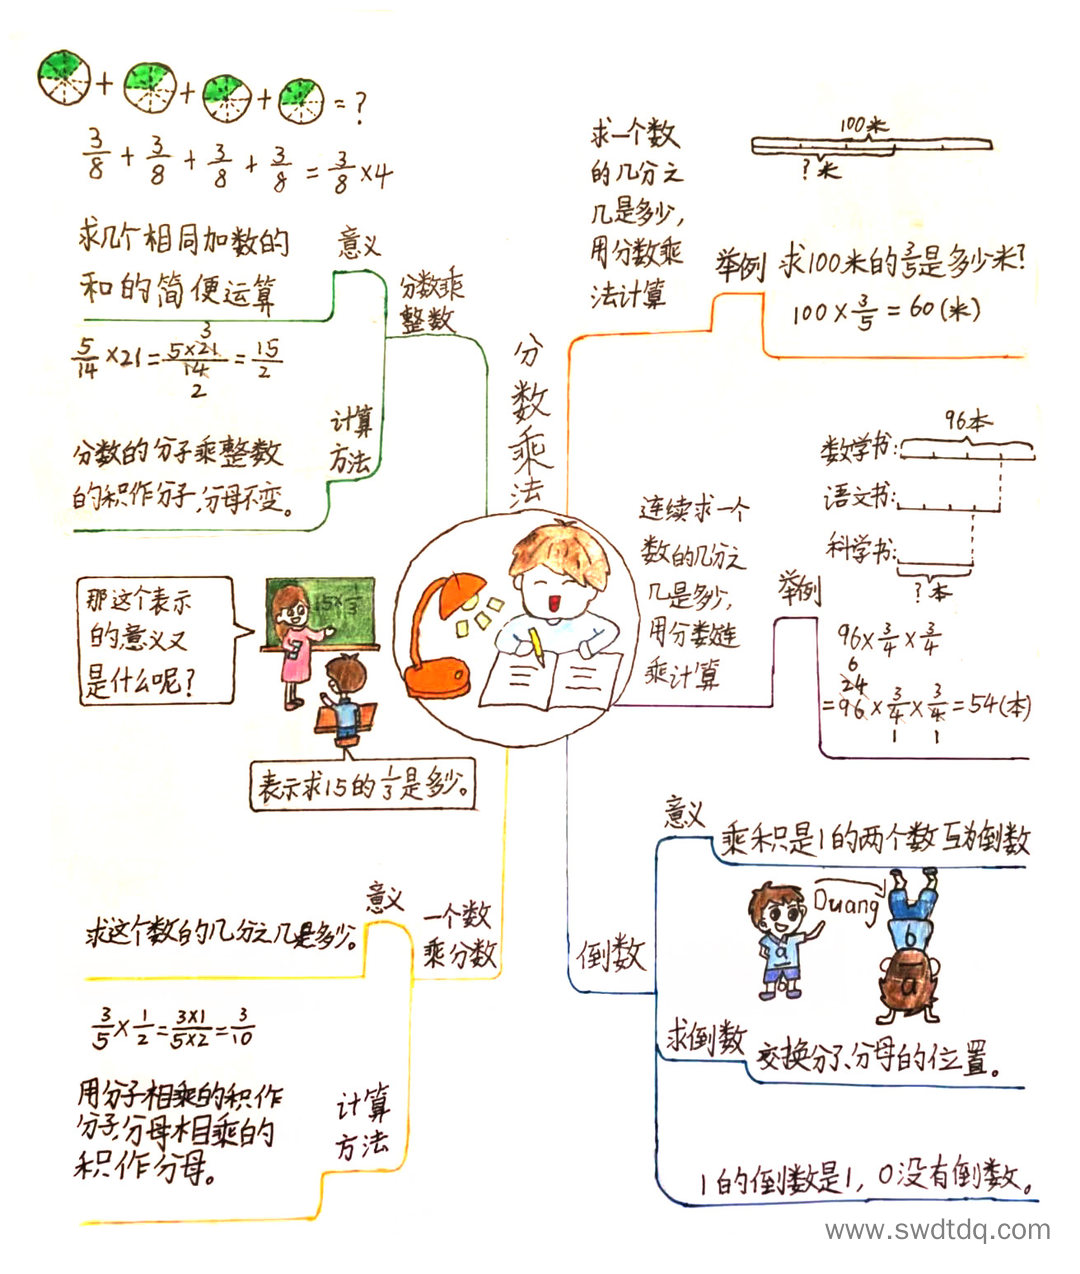 + + + = ?
3/8 + 3/8 + 3/8 + 3/8 = 3/8 ×4
求几个相同加数的
和的简便运算
意义
分数乘
整数
5/14 ×21= 5×21/14 = 15/2
3
2
计算
方法
分数的分子乘整数
的积作分子,分母不变。
分数乘法
求一个数
的几分之
几是多少,
用分数乘
法计算
100米
?米
举例
求100米的3/5是多少米?
100×3/5=60(米)
连续求一个
数的几分之
几是多少,
用分数连
乘计算
举例
96本
数学书:
语文书:
科学书:
?本
96×3/4×3/4
6
24
=96×3/4×3/4=54(本)
1 1
那这个表示
的意义又
是什么呢?
15×1/3
表示求15的1/3是多少。
意义
求这个数的几分之几是多少。
一个数
乘分数
3/5×1/2=3×1/5×2=3/10
计算
方法
用分子相乘的积作
分子,分母相乘的
积作分母。
倒数
意义
乘积是1的两个数互为倒数
Duang
a
b
b
a
求倒数
交换分子、分母的位置。
1的倒数是1, 0没有倒数。
www.swdtdq.com